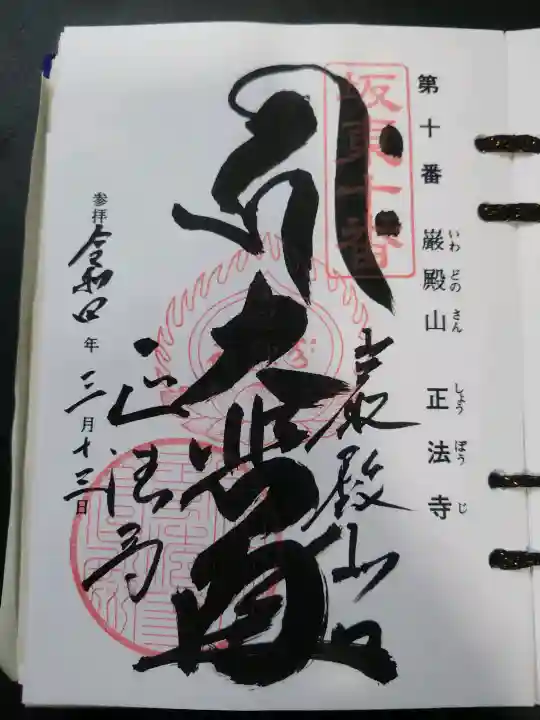 第十番 巌殿山 正法寺
いわ どの さん しょう ぼう じ
坂東十番
巌殿山
大悲殿
正法寺
参拝 令和四年 三月十三日